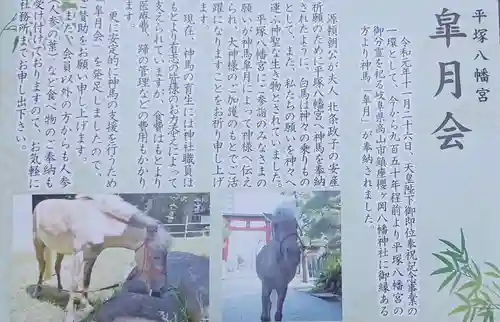 平塚八幡宮
皐月会
令和元年十一月二十六日、天皇陛下御即位奉祝記念事業の
一環として、今から九百五十年程前より平塚八幡宮の
御分霊を祀る岐阜県高山市鎮座櫻ヶ岡八幡神社に御縁ある
方より神馬「皐月」が奉納されました。
源頼朝公が夫人 北条政子の安産
祈願のために平塚八幡宮に神馬を奉納
されたように、白馬は神々の乗りもの
として、また、私たちの願いを神々へ
運ぶ神聖な生き物とされていました。
平塚八幡宮にご参詣のみなさまの
願いが神馬皐月によって神様へ伝え
られ、大神様のご加護のもとでご活
躍になりますことをお祈り申し上げ
ます。
現在、神馬の育生には神社職員は
もとより有志の皆様のお力添えによって
支えられていますが、食費はもとより
医療費、蹄の管理などの費用もかかり
ます。
更に安定的に神馬の支援を行うため
「皐月会」を発足しましたので、
ご賛助をお願い申し上げます。
また、会員以外の方からも人参
(人参の葉)など食べ物のご奉納も
受け付けておりますので、お気軽に
社務所までお申し出下さい。